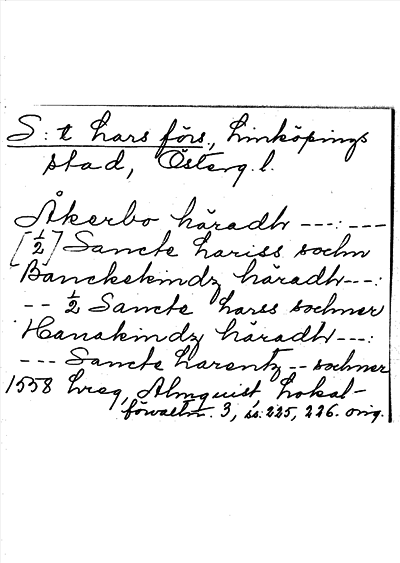 S:t Lars förs., Linköpings
stad, Österg.l.
Åkerbo häradh ---:---
[½] Sancte Lariss sochn
Banckekindz häradh---:
-- ½ Sancte Larss sochner
Hanakindz häradh---:
--- Sancte Larentz -- sochner
1558 Lreg, Almquist, Lokal-
förvaltn. 3, ss. 225, 226. orig.